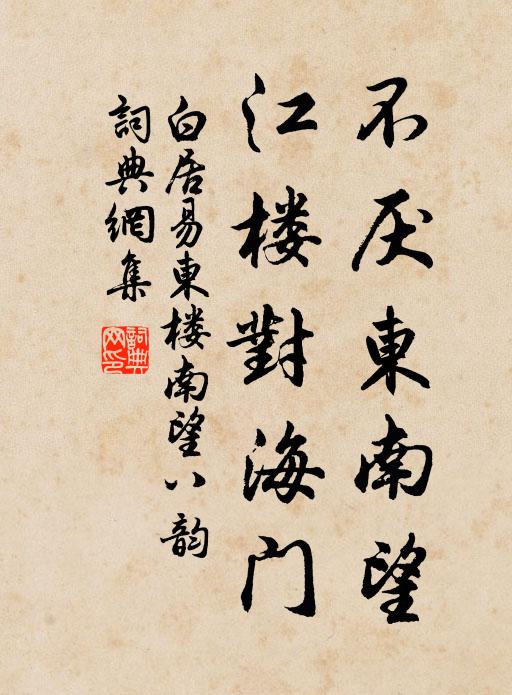 不厌東南望
江楼對海门
白居易東楼南望八韵
詞典網集
詞典網印